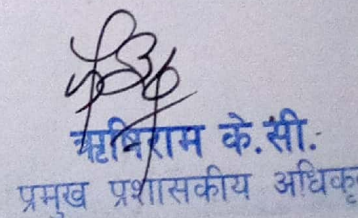 ऋषिराम के.सी.
प्रमुख प्रशासकीय अधिकृ